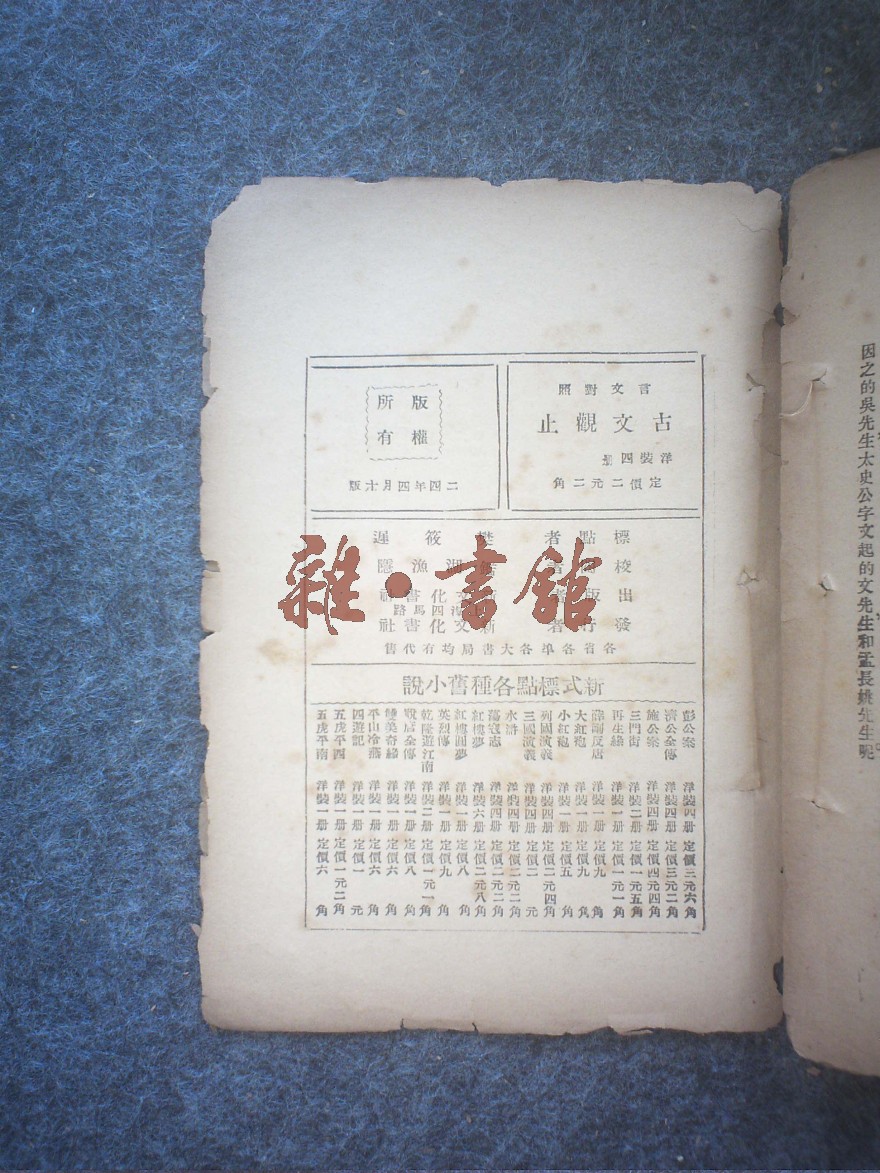 言文對照
古文觀止
洋裝四册
定價二元二角
版權
所有
二四年四月十版
標點者 樊筱遲
校 湖漁隱
出版者 文化書社
四馬路
發行者 新文化書社
各省各埠各大書局均有代售
新式標點各種舊小說
彭公案 洋裝四册 定價三元六角
濟公全傳 洋裝四册 定價三元二角
施公案 洋裝四册 定價四元四角
三門街 洋裝二册 定價一元五角
再生緣 洋裝一册 定價一元一角
反唐 洋裝一册 定價九角
大紅袍 洋裝一册 定價九角
小紅袍 洋裝一册 定價五角
列國演義 洋裝四册 定價二元四角
三國演義 洋裝四册 定價二元
水滸 洋裝四册 定價二元二角
蕩寇志 洋裝四册 定價二元二角
紅樓夢 洋裝六册 定價二元八角
紅樓圓夢 洋裝一册 定價八角
英烈傳 洋裝一册 定價九角
乾隆遊江南 洋裝二册 定價一元一角
說唐全傳 洋裝一册 定價八角
雙美奇緣 洋裝一册 定價六角
平山冷燕 洋裝一册 定價六角
四遊記 洋裝一册 定價一元
五虎平西 洋裝一册 定價一元二角
五虎平南 洋裝一册 定價六角
雜·書館
因之的吳先生太史公字文起的文先生和孟長姚先生呢